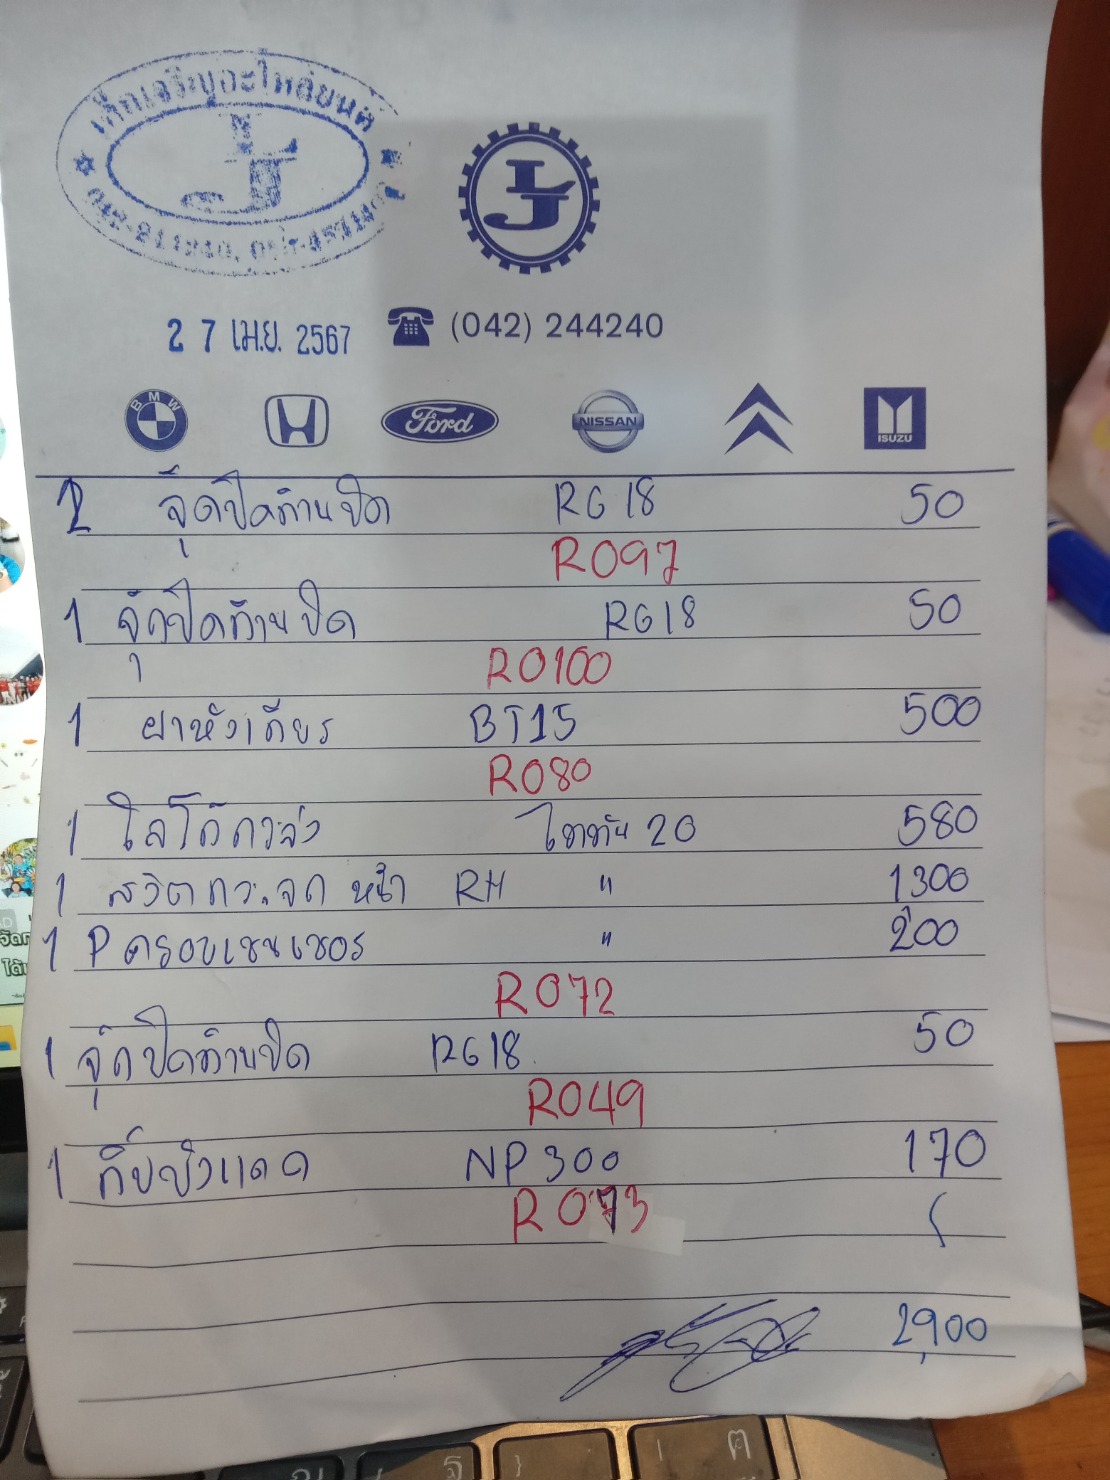 เต็กเจริญอะไหล่ยนต์
LJ
LJ
27 เม.ย. 2567 (042) 244240
BMW Ford NISSAN ISUZU
จุ๊ดปิดก้านปัด RG18 50
R097
1 จุ๊ดปิดก้านปัด RG18 50
R0100
1 ฝาหัวเกียร BT15 500
R080
1 ไททัน 20 580
1 สวิตกระจก หน้า RH " 1300
1 P ครอบเซนเซอร " 200
R072
1 จุ๊ดปิดก้านปัด RG18 50
R049
1 กิ๊บบังแดด NP300 170
R073
2,900